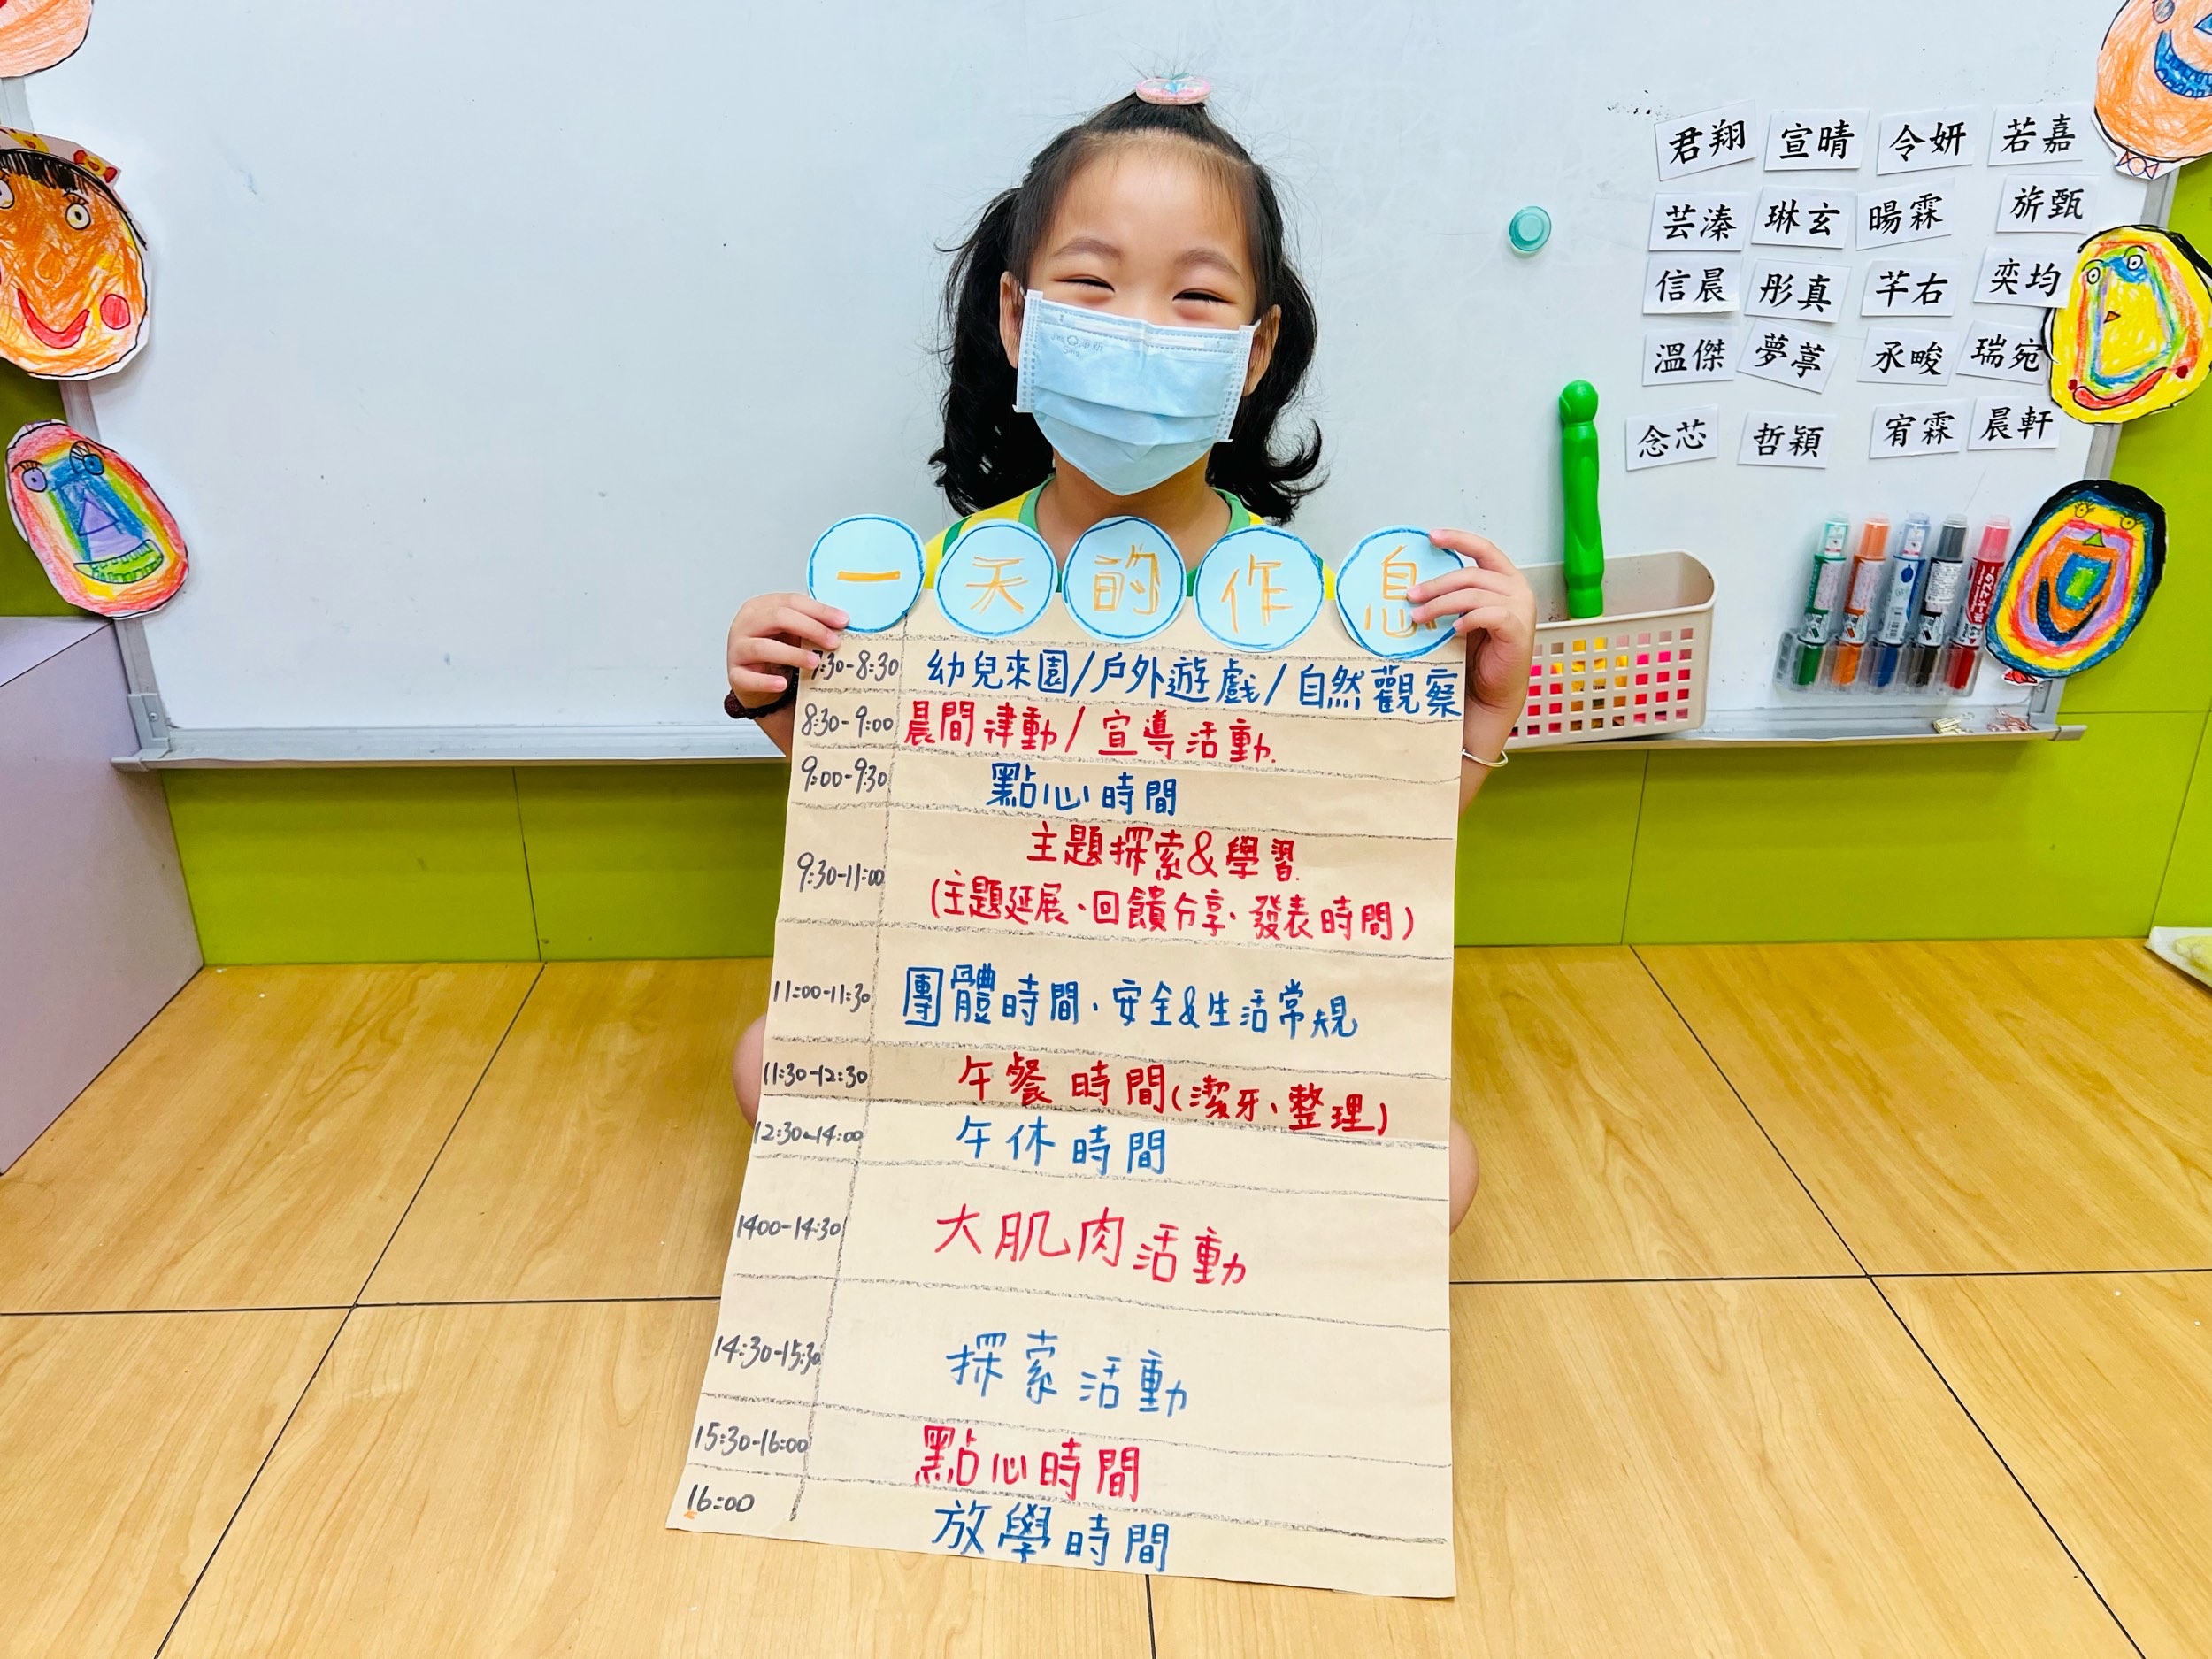 君翔 宣晴 令妍 若嘉
芸溱 琳玄 暘霖 旂甄
信晨 彤真 芊右 奕均
溫傑 夢葶 丞畯 瑞宛
念芯 哲穎 宥霖 晨軒
一天的作息
:30-8:30 幼兒來園/戶外遊戲/自然觀察
8:30-9:00 晨間律動/宣導活動.
9:00-9:30 點心時間
9:30-11:00 主題探索&學習.
(主題延展、回饋分享、發表時間)
11:00-11:30 團體時間、安全&生活常規
11:30-12:30 午餐時間(潔牙、整理)
12:30-14:00 午休時間
1400-14:30 大肌肉活動
14:30-15:30 探索活動
15:30-16:00 點心時間
16:00 放學時間